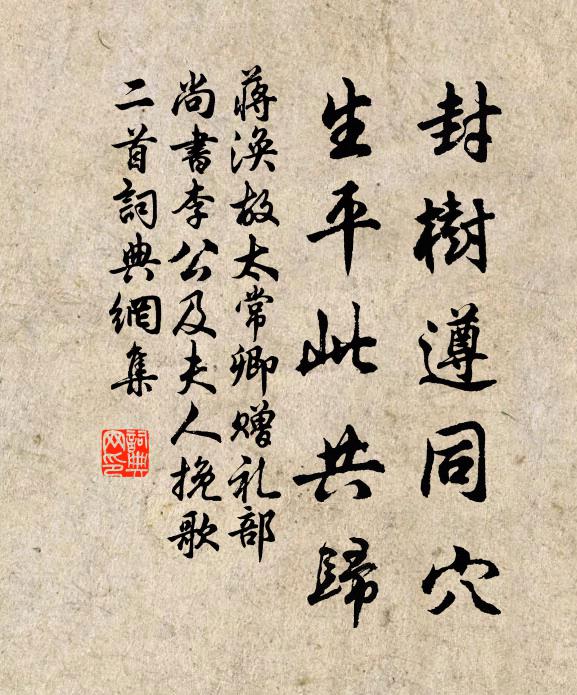 封樹遵同穴
生平此共歸
蔣渙故太常卿赠礼部
尚書李公及夫人挽歌
二首詞典網集
詞典网印